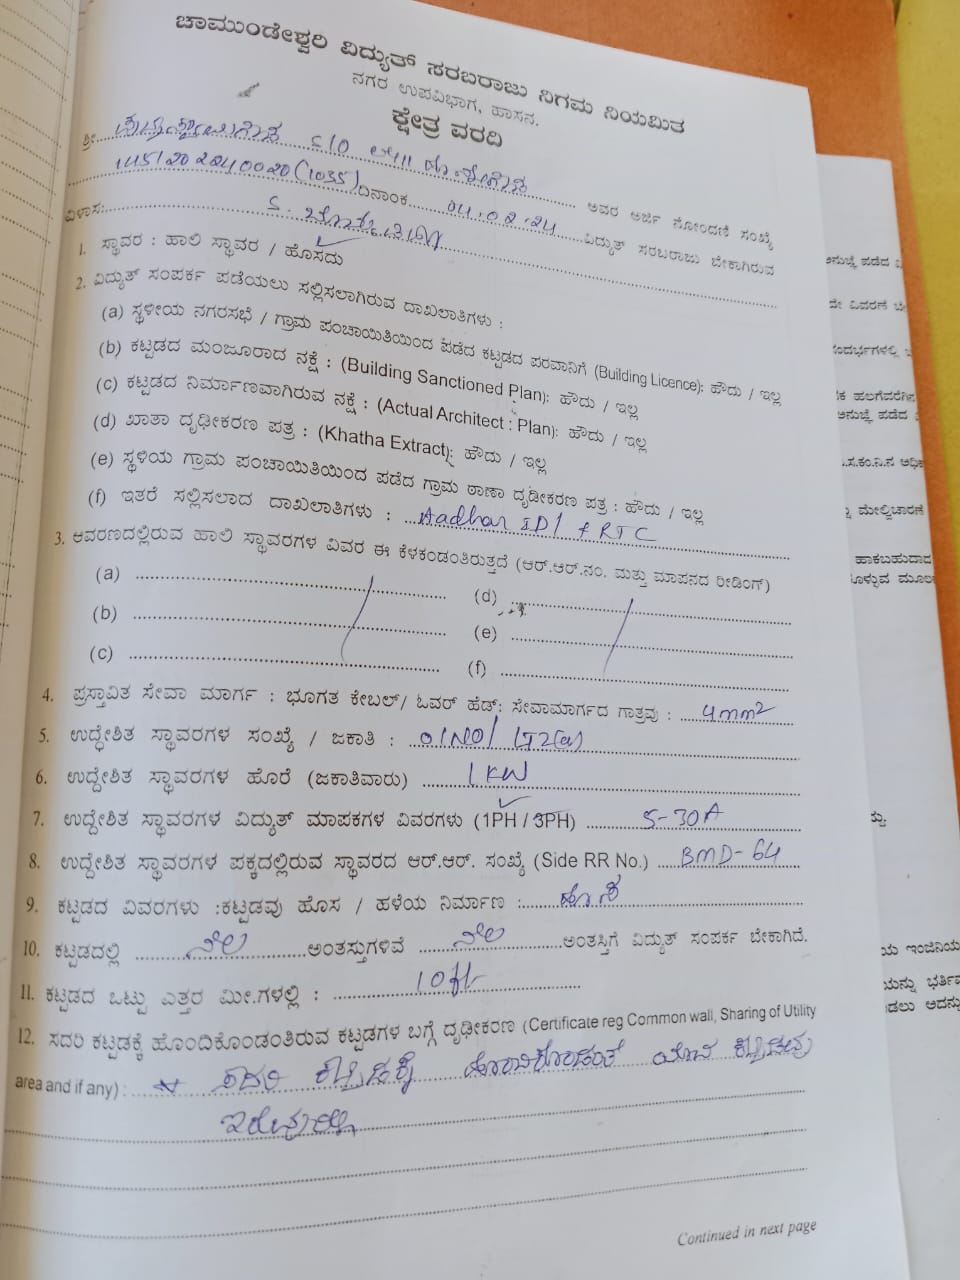 ಚಾಮುಂಡೇಶ್ವರಿ ವಿದ್ಯುತ್ ಸರಬರಾಜು ನಿಗಮ ನಿಯಮಿತ
ನಗರ ಉಪವಿಭಾಗ, ಹಾಸನ.
ಕ್ಷೇತ್ರ ವರದಿ
ಶ್ರೀ. S/O ಅವರ ಅರ್ಜಿ ನೋಂದಣಿ ಸಂಖ್ಯೆ
(1035) ದಿನಾಂಕ 04.02.24 ವಿದ್ಯುತ್ ಸರಬರಾಜು ಬೇಕಾಗಿರುವ
ವಿಳಾಸ:
1. ಸ್ಥಾವರ : ಹಾಲಿ ಸ್ಥಾವರ / ಹೊಸದು
2. ವಿದ್ಯುತ್ ಸಂಪರ್ಕ ಪಡೆಯಲು ಸಲ್ಲಿಸಲಾಗಿರುವ ದಾಖಲಾತಿಗಳು :
(a) ಸ್ಥಳೀಯ ನಗರಸಭೆ / ಗ್ರಾಮ ಪಂಚಾಯಿತಿಯಿಂದ ಪಡೆದ ಕಟ್ಟಡದ ಪರವಾನಿಗೆ (Building Licence): ಹೌದು / ಇಲ್ಲ
(b) ಕಟ್ಟಡದ ಮಂಜೂರಾದ ನಕ್ಷೆ : (Building Sanctioned Plan): ಹೌದು / ಇಲ್ಲ
(c) ಕಟ್ಟಡದ ನಿರ್ಮಾಣವಾಗಿರುವ ನಕ್ಷೆ : (Actual Architect : Plan): ಹೌದು / ಇಲ್ಲ
(d) ಖಾತಾ ದೃಢೀಕರಣ ಪತ್ರ : (Khatha Extract): ಹೌದು / ಇಲ್ಲ
(e) ಸ್ಥಳಿಯ ಗ್ರಾಮ ಪಂಚಾಯಿತಿಯಿಂದ ಪಡೆದ ಗ್ರಾಮ ಠಾಣಾ ದೃಢೀಕರಣ ಪತ್ರ : ಹೌದು / ಇಲ್ಲ
(f) ಇತರೆ ಸಲ್ಲಿಸಲಾದ ದಾಖಲಾತಿಗಳು : Aadhar ID / RTC
3. ಆವರಣದಲ್ಲಿರುವ ಹಾಲಿ ಸ್ಥಾವರಗಳ ವಿವರ ಈ ಕೆಳಕಂಡಂತಿರುತ್ತದೆ (ಆರ್.ಆರ್.ನಂ. ಮತ್ತು ಮಾಪನದ ರೀಡಿಂಗ್)
(a) (d)
(b) (e)
(c) (f)
4. ಪ್ರಸ್ತಾವಿತ ಸೇವಾ ಮಾರ್ಗ : ಭೂಗತ ಕೇಬಲ್/ ಓವರ್ ಹೆಡ್: ಸೇವಾಮಾರ್ಗದ ಗಾತ್ರವು : 4mm2
5. ಉದ್ಧೇಶಿತ ಸ್ಥಾವರಗಳ ಸಂಖ್ಯೆ / ಜಕಾತಿ : 01NO/ LT2(a)
6. ಉದ್ದೇಶಿತ ಸ್ಥಾವರಗಳ ಹೊರೆ (ಜಕಾತಿವಾರು) 1KW
7. ಉದ್ದೇಶಿತ ಸ್ಥಾವರಗಳ ವಿದ್ಯುತ್ ಮಾಪಕಗಳ ವಿವರಗಳು (1PH / 3PH) 5-30A
8. ಉದ್ದೇಶಿತ ಸ್ಥಾವರಗಳ ಪಕ್ಕದಲ್ಲಿರುವ ಸ್ಥಾವರದ ಆರ್.ಆರ್. ಸಂಖ್ಯೆ (Side RR No.) BMD-64
9. ಕಟ್ಟಡದ ವಿವರಗಳು :ಕಟ್ಟಡವು ಹೊಸ / ಹಳೆಯ ನಿರ್ಮಾಣ : ಹೊಸ
10. ಕಟ್ಟಡದಲ್ಲಿ ನೆಲ ಅಂತಸ್ತುಗಳಿವೆ ನೆಲ ಅಂತಸ್ತಿಗೆ ವಿದ್ಯುತ್ ಸಂಪರ್ಕ ಬೇಕಾಗಿದೆ.
11. ಕಟ್ಟಡದ ಒಟ್ಟು ಎತ್ತರ ಮೀ.ಗಳಲ್ಲಿ : 10ft
12. ಸದರಿ ಕಟ್ಟಡಕ್ಕೆ ಹೊಂದಿಕೊಂಡಂತಿರುವ ಕಟ್ಟಡಗಳ ಬಗ್ಗೆ ದೃಢೀಕರಣ (Certificate reg Common wall, Sharing of Utility
area and if any) : ಸದರಿ ಕಟ್ಟಡಕ್ಕೆ ಹೊಂದಿಕೊಂಡಂತೆ ಯಾವ ಕಟ್ಟಡವು
ಇರುವುದಿಲ್ಲ
Continued in next page